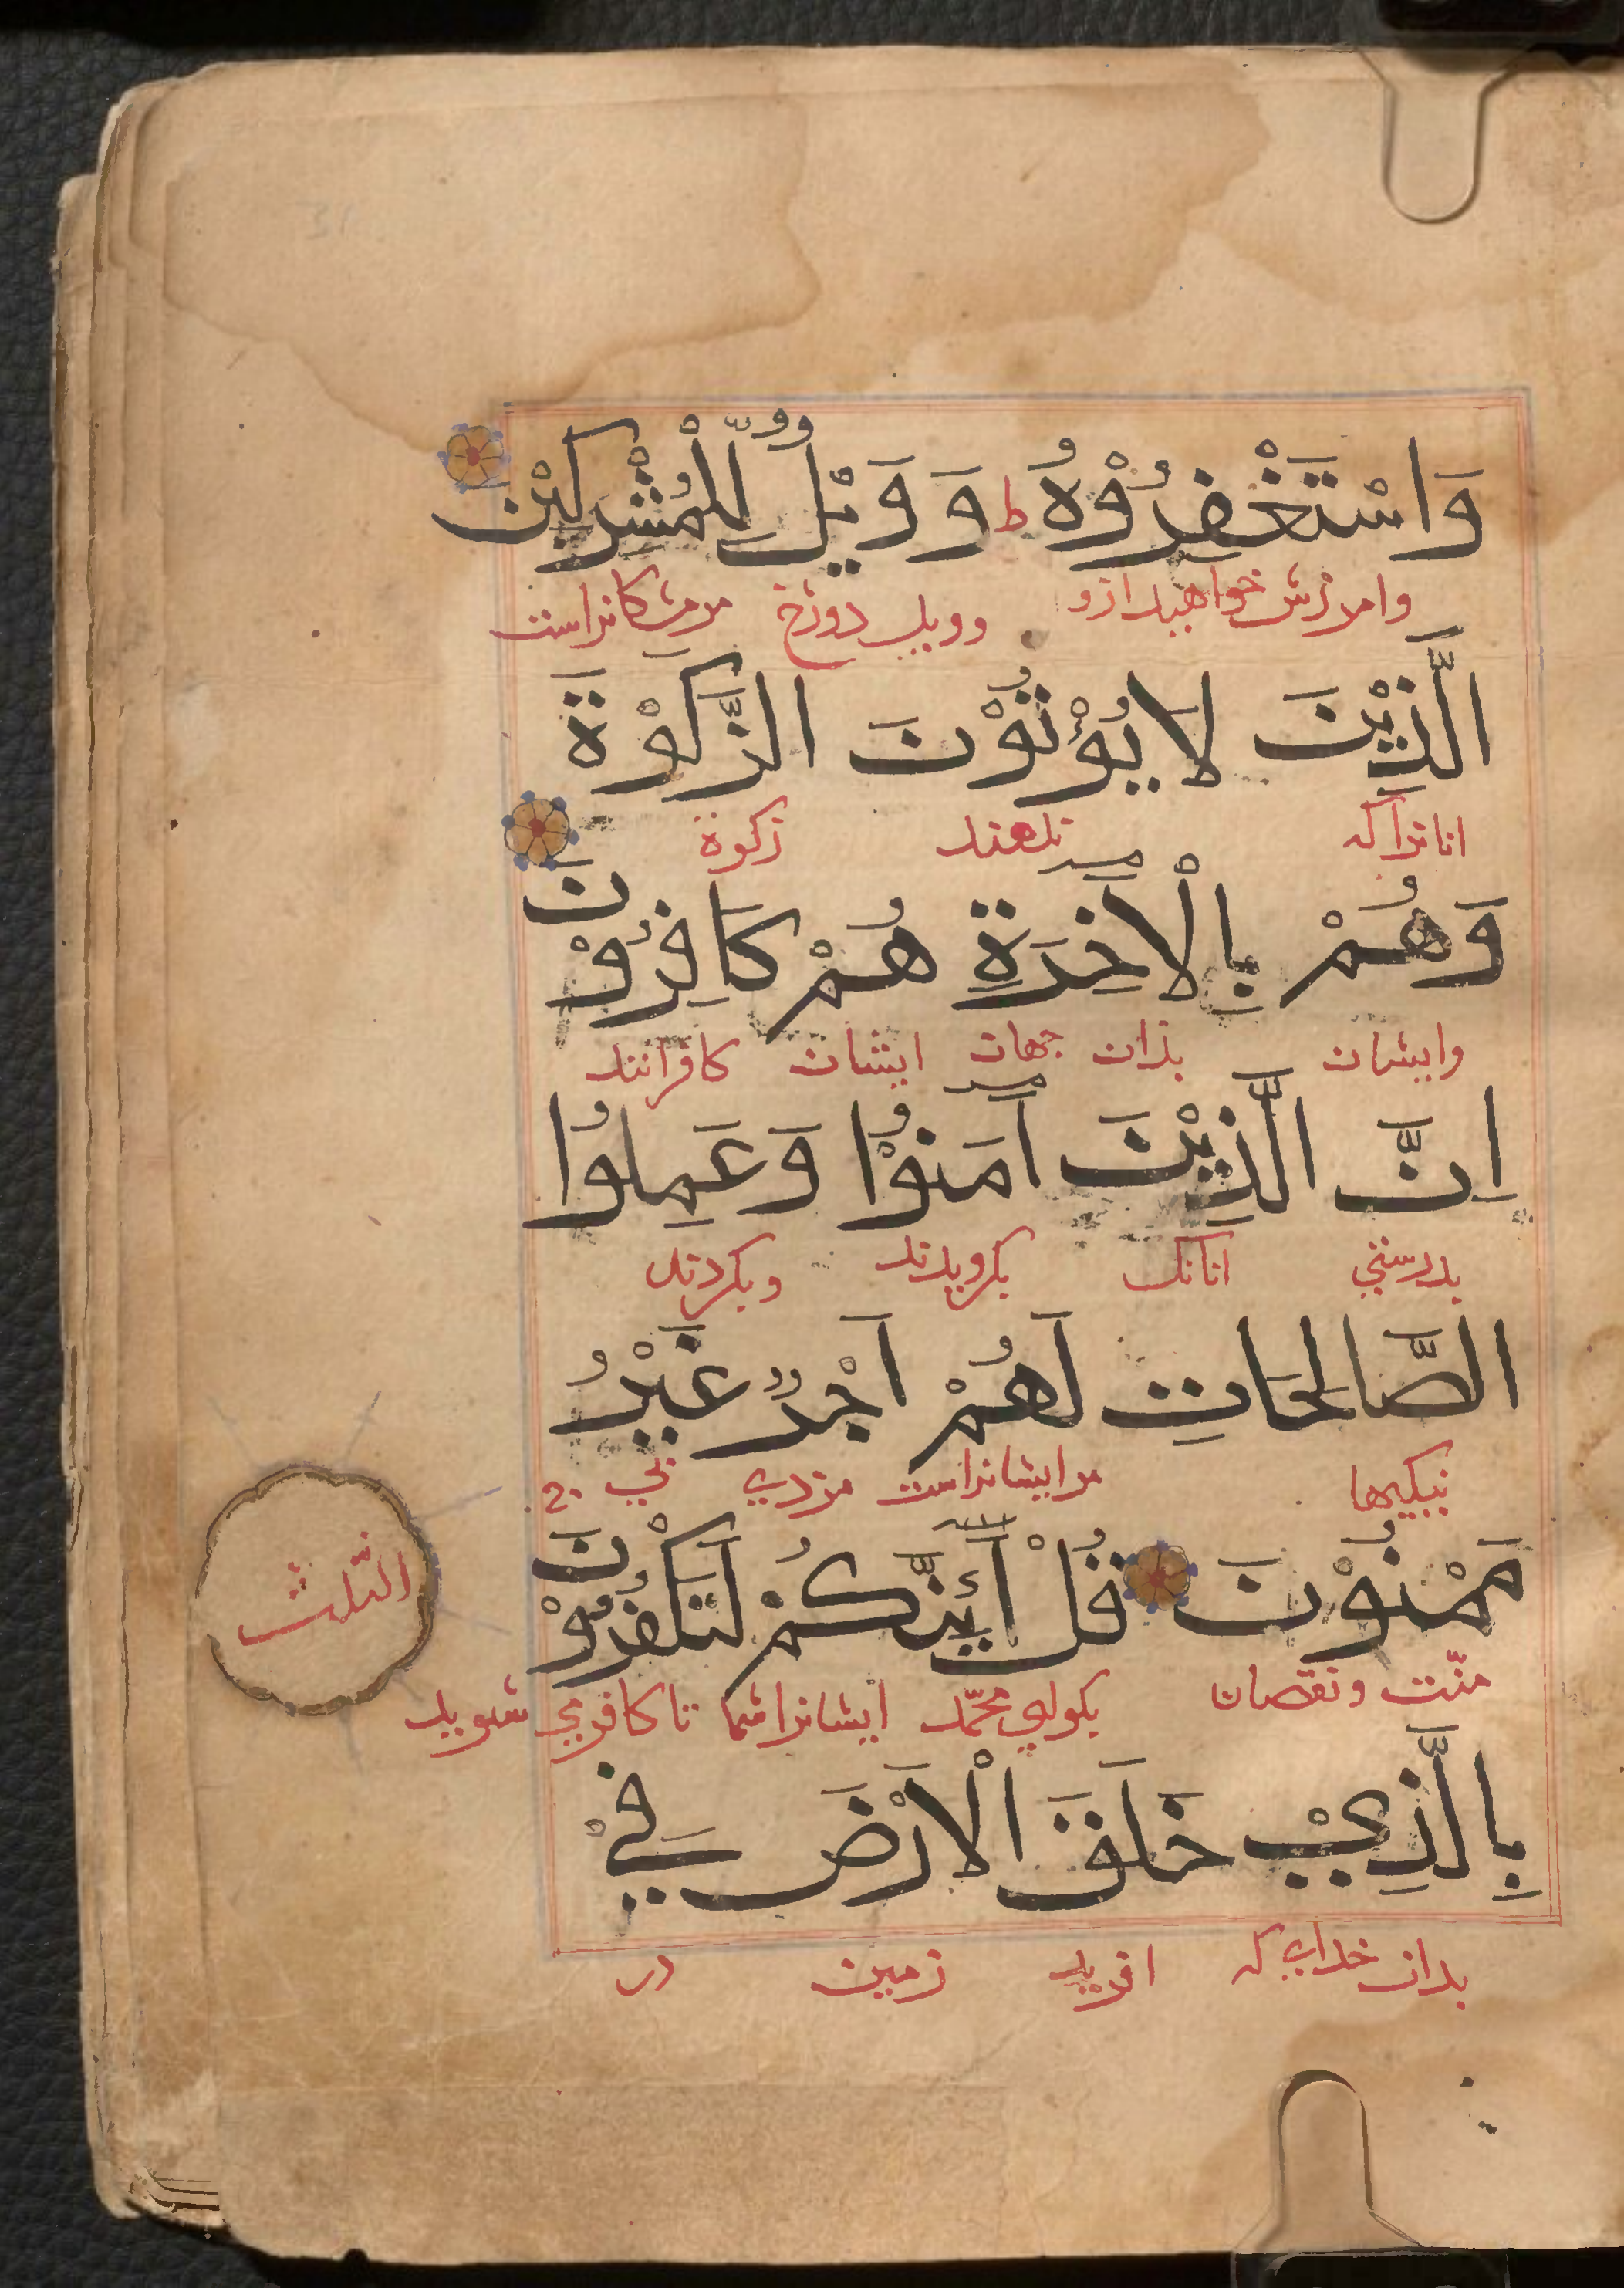 وَاسْتَغْفِرُوْهُ ط وَ وَيْلٌ لِّلْمُشْرِكِيْنَ
وامرزش خواهید ازو وویل دوزخ مرمشرکانراست
الَّذِيْنَ لَا يُؤْتُوْنَ الزَّكٰوةَ
انانراکه ندهند زکوة
وَهُمْ بِالْاٰخِرَةِ هُمْ كَافِرُوْنَ
وایشان بذان جهان ایشان کافرانند
اِنَّ الَّذِيْنَ اٰمَنُوْا وَعَمِلُوا
بدرستی انانک بکرویدند وبکردند
الصَّالِحَاتِ لَهُمْ اَجْرٌ غَيْرُ
نیکیها مرایشانراست مزدی بی
مَمْنُوْنَ قُلْ اَئِنَّكُمْ لَتَكْفُرُوْنَ
منّت ونقصان بکوای محمّد ایشانراشما تا کافرمی شوید
الثلث
بِالَّذِيْ خَلَقَ الْاَرْضَ فِيْ
بدان خدای که افرید زمین در